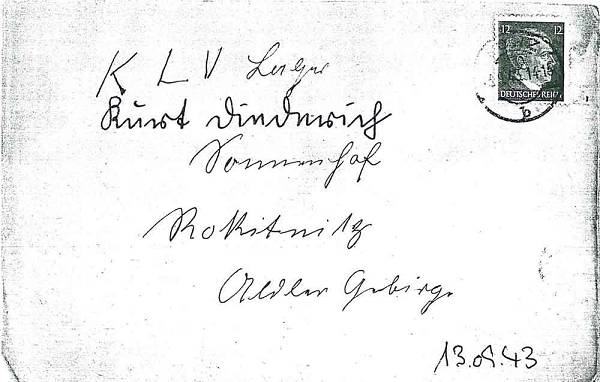 12 12
DEUTSCHES REICH
K L V Lager
Kurt Diederich
Sonnenhof
Rokitnitz
Adler Gebirge
13.09.43